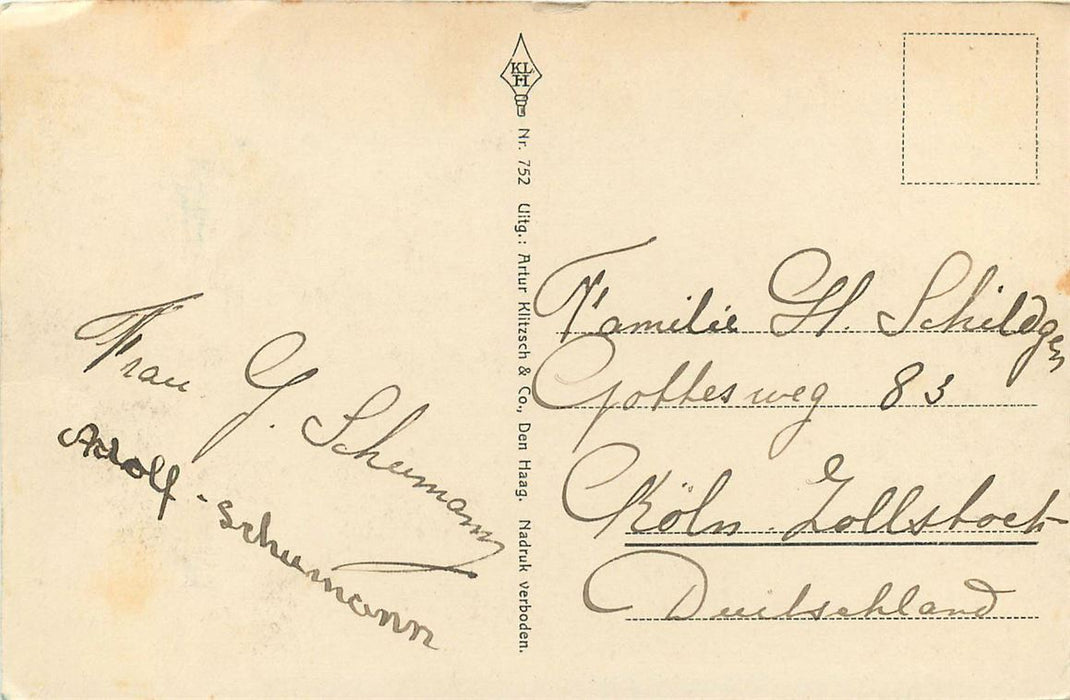 Frau G. Schumann
Adolf-Schumann
KL
H
Nr. 752 Uitg.: Artur Klitzsch & Co., Den Haag. Nadruk verboden.
Familie H. Schildgen
Gottesweg 83
Köln Zollstock
Deutschland